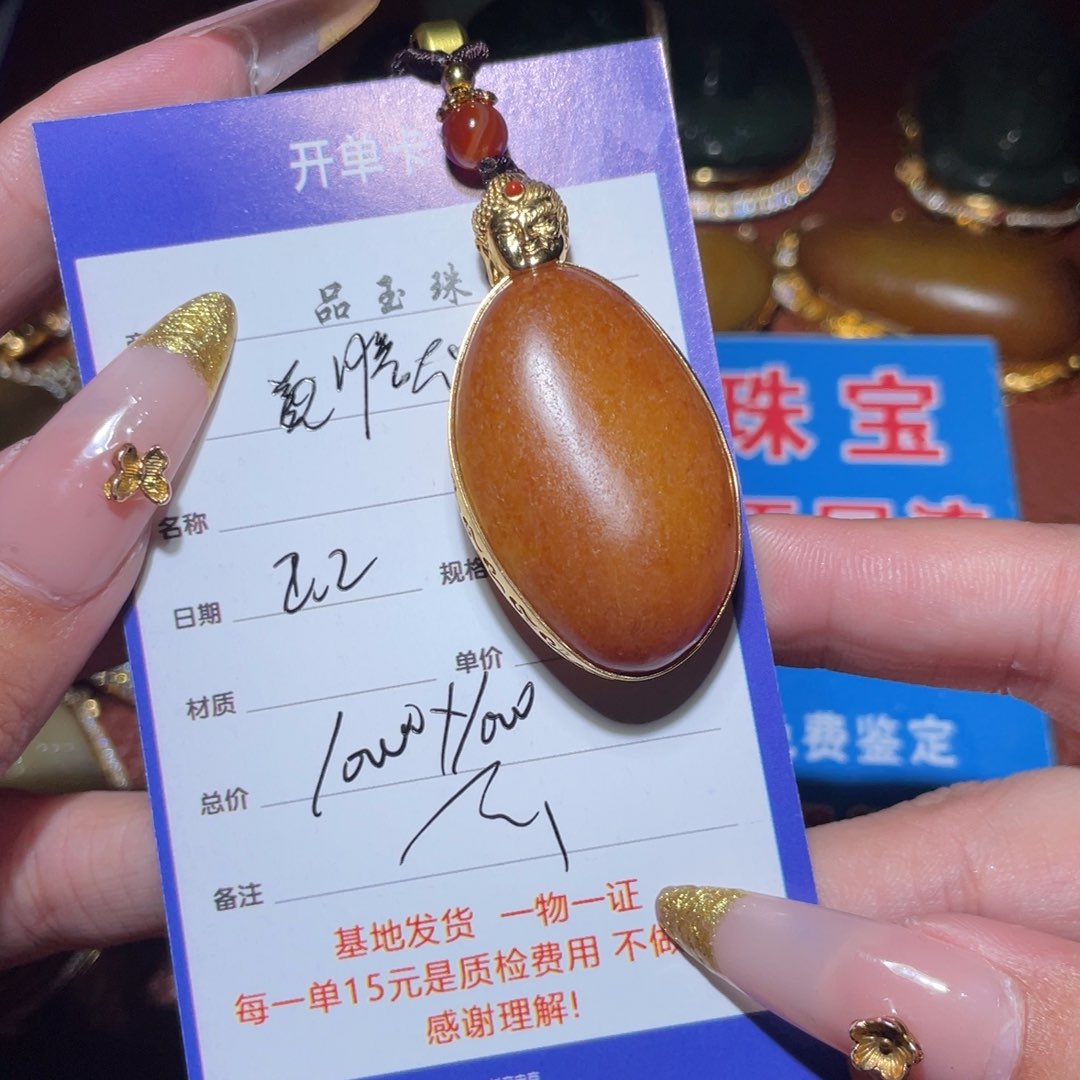 开单卡
品玉珠
名称
日期 2.2 规格
材质 单价
总价 1000+1000
备注
基地发货 一物一证
每一单15元是质检费用 不做
感谢理解!
珠宝
费鉴定